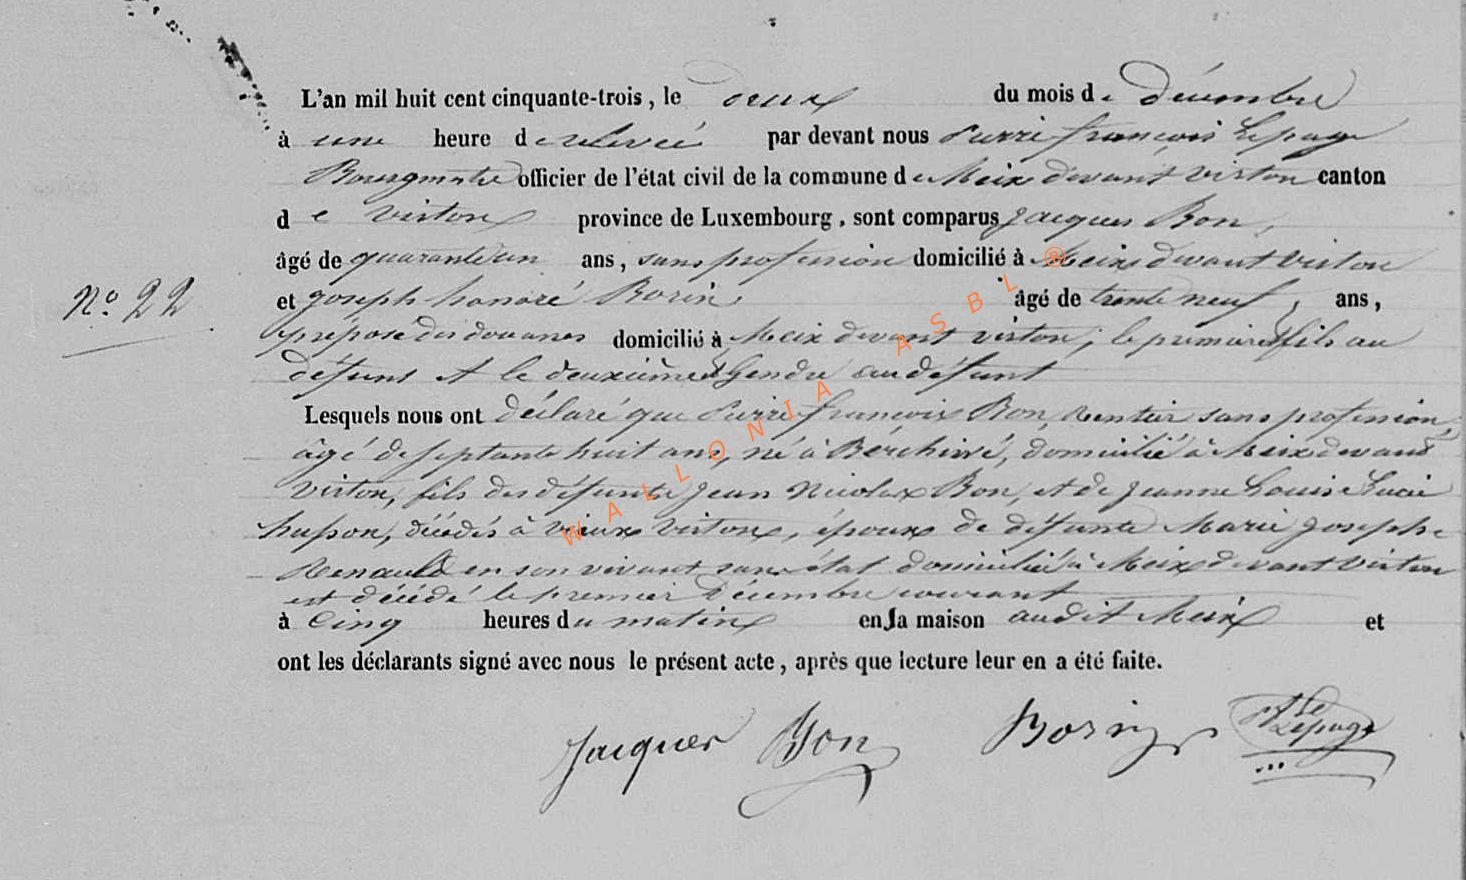 L'an mil huit cent cinquante-trois, le deux du mois de décembre
à une heure de relevée par devant nous Pierre françois Lepage
Bourgmestre officier de l'état civil de la commune de Meix devant virton canton
de virton province de Luxembourg, sont comparus Jacques Bon,
âgé de quarante un ans, sans profession domicilié à Meix devant virton
N° 22
et joseph honoré Borin, âgé de trente neuf, ans,
préposé des douanes domicilié à Meix devant virton, le premier fils au
défunt et le deuxième Gendre au défunt
Lesquels nous ont déclaré que Pierre françois Bon, Rentier sans profession,
âgé de septante huit ans, né à Berchiwé, domicilié à Meix devant
virton, fils des défunts Jean Nicolas Bon, et de Jeanne Louise Lucie
husson, décédés à vieux virton, époux de défunte Marie Josephe
Renauld en son vivant sans état domicilié à Meix devant virton
est décédé le premier Décembre courant
à Cinq heures du matin en la maison audit Meix et
ont les déclarants signé avec nous le présent acte, après que lecture leur en a été faite.
Jacques Bon Borin Lepage
WALLONIA ASBL ®